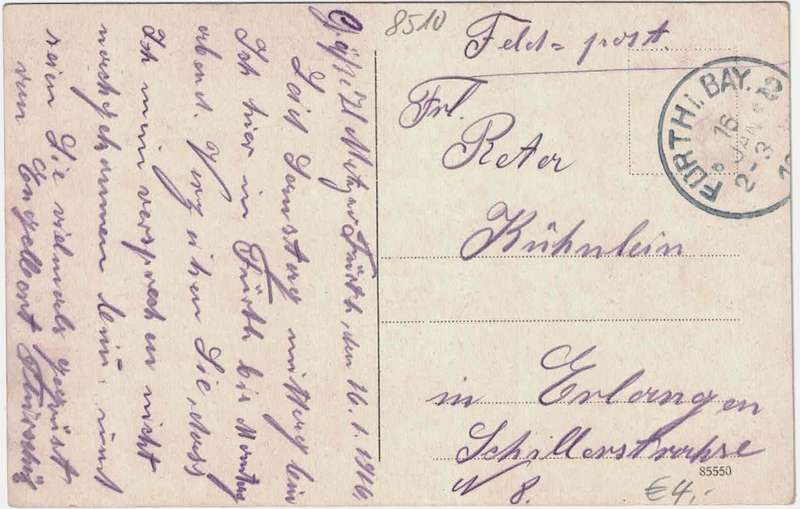 8510
Feld=post.
Frl.
Reter
Kühnlein
in Erlangen
Schillerstrahse
N 8.
FÜRTH I. BAY. 2
16 JAN
2-3
85550
€4,-
Fürth, den 16.1.1916.
Seit Samstag mittag bin
Ich hier in Fürth bis Montag
abend. Verzeihen Sie, dass
Ich mein versprechen nicht
nachgekommen bin. und
seien Sie vielmals gegrüst
von Engelbert